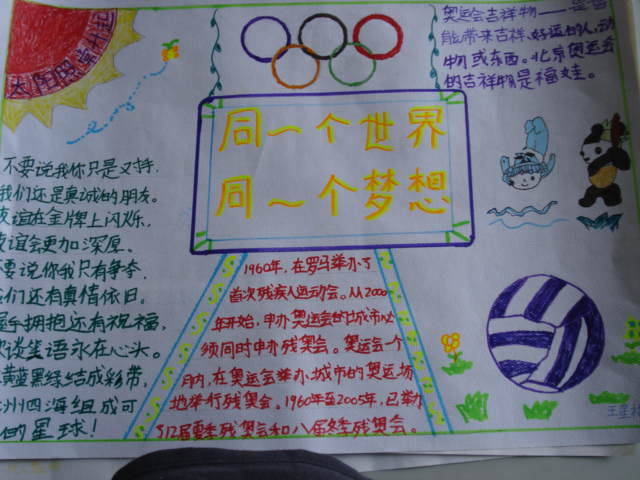 太阳照常升起
奥运会吉祥物——是
能带来吉祥、好运的人、动
物或东西。北京奥运会
的吉祥物是福娃。
同一个世界
同一个梦想
不要说我你只是对手,
我们还是真诚的朋友。
友谊在金牌上闪烁,
友谊会更加深厚。
不要说你我只有争夺,
我们还有真情依旧。
握手拥抱还有祝福,
欢谈笑语永在心头。
黄蓝黑绿结成彩带,
洲四海组成可
的星球!
1960年,在罗马举办了
首次残疾人运动会。从2000
年开始,申办奥运会的城市必
须同时申办残奥会。奥运会一个
月内,在奥运会举办城市的奥运场
地举行残奥会。1960年至2005年,已举办
了12届夏季残奥会和八届冬季残奥会。